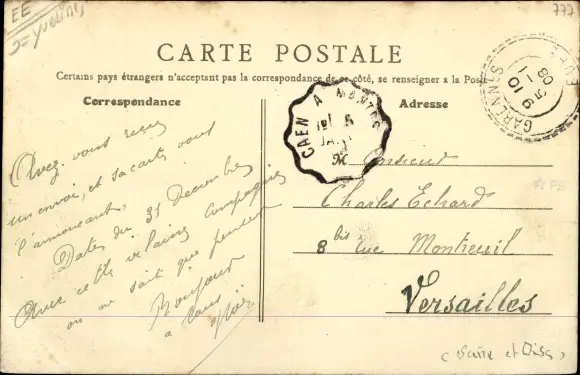 EE
777
CARTE POSTALE
Certains pays étrangers n'acceptant pas la correspondance de ce côté, se renseigner à la Poste
Correspondance
Adresse
CAEN A MANTES
GARENNES EURE
9 10
5 -1
08
Avez vous reçu
un envoi, et sa carte vous
l'annonçant,
Datés du 31 Décembre
Avec cette vilaine Compagnie
on ne sait que penser
Bonjour
à tous
Monsieur
Charles Echard
8 bis rue Montreuil
Versailles
(Seine et Oise)